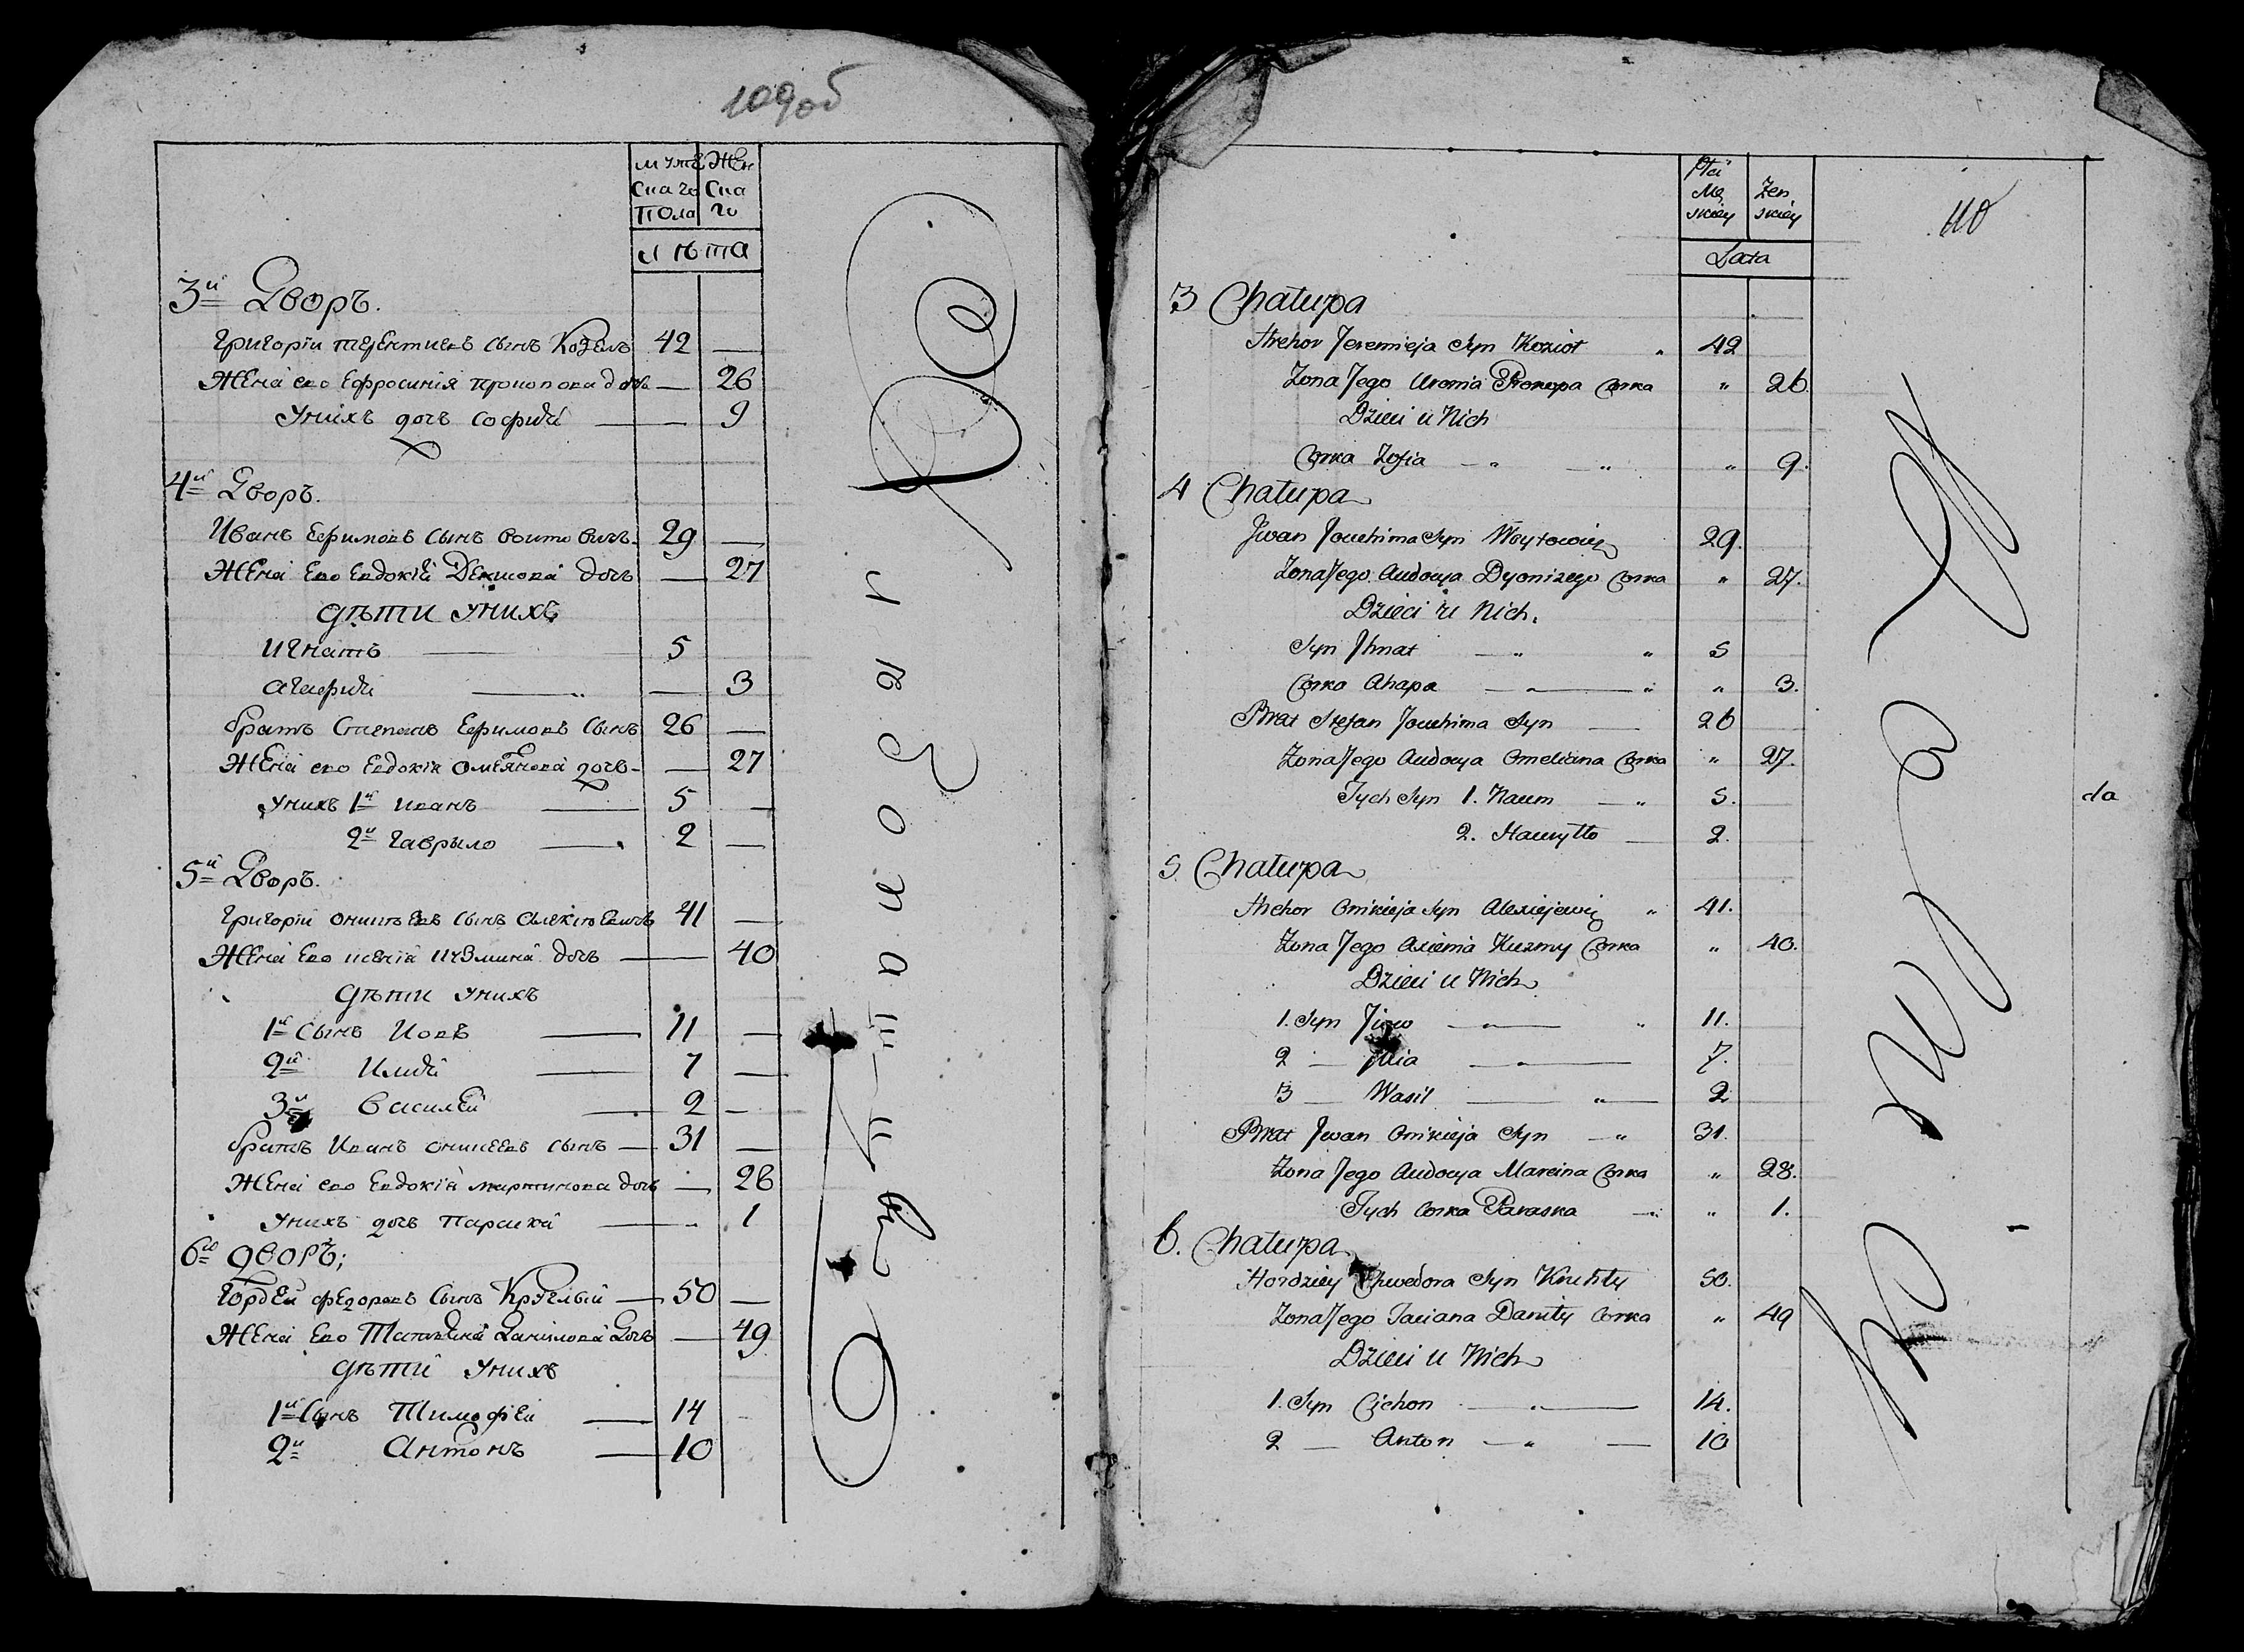 109об
мужеЖен
скагоСка
Полаго
Лѣта
3й Дворъ.
Григории терентиевъ сынъ Козелъ 42 —
Жена ево Ефросиния прокопова дочь — 26
Унихъ дочь София — 9
4й Дворъ.
Иванъ Ефимовъ сынъ воитовичъ 29 —
Жена Ево Евдокия Денисова дочь — 27
Дѣти Унихъ
Игнатъ — 5
Агафия — — 3
братъ Степанъ Ефимовъ Сынъ 26 —
Жена ево Евдокия Омелянова дочь — 27
Унихъ 1й Иванъ — 5 —
2й Гаврыло — 2 —
5й Дворъ.
Григории оникѣевъ сынъ Алексѣевичъ 41 —
Жена Ево ксения кузмина дочь — 40
Дѣти Унихъ
1й Сынъ Иовъ — 11 —
2й Илия — 7 —
3й Василей — 2 —
братъ Иванъ оникеевъ сынъ — 31 —
Жена ево Евдокия мартинова дочь — 28
Унихъ дочь Параска — 1
6й дворъ;
Гордей федоровъ Сынъ Круглый — 50 —
Жена Ево Татияна Данилова Дочь — 49
Дѣти Унихъ
1й Сынъ Тимофей — 14 —
2й Антонъ — 10
110
Płci
Mę Żen
skiey skiey
Lata
3 Chałupa
Hrehor Jeremieja Syn Kozioł „ 42
Żona Jego Uronia Prokopa Corka „ 26.
Dzieci u Nich
Corka Zofia — „ — „ „ 9.
4 Chałupa
Jwan Jouchima Syn Woytowicz 29.
Żona Jego Audocya Dyonizego Corka „ 27.
Dzieci u Nich.
Syn Jhnat — „ „ 5
Corka Ahapa — „ — „ „ 3.
Brat Stefan Jouchima Syn — 26
Żona Jego Audocya Omeliana Corka „ 27.
Tych Syn 1. Naum — „ 5.
2. Hauryłło — 2.
5 Chałupa
Hrehor Onikieja Syn Alexiejewicz „ 41.
Żona Jego Axienia Kuzmy Corka „ 40.
Dzieci u Nich
1. Syn Jow — „ — „ 11.
2 — Jlia — „ — 7.
3 — Wasil — „ — 2
Brat Jwan Onikieja Syn — „ 31.
Żona Jego Audocya Marcina Corka „ 28.
Tych Corka Paraska — „ „ 1.
6. Chałupa
Hordziey Chwedora Syn Kruhły 50.
Żona Jego Taciana Daniły Corka „ 49
Dzieci u Nich
1. Syn Cichon — „ — 14.
2 — Anton — „ — 10
da